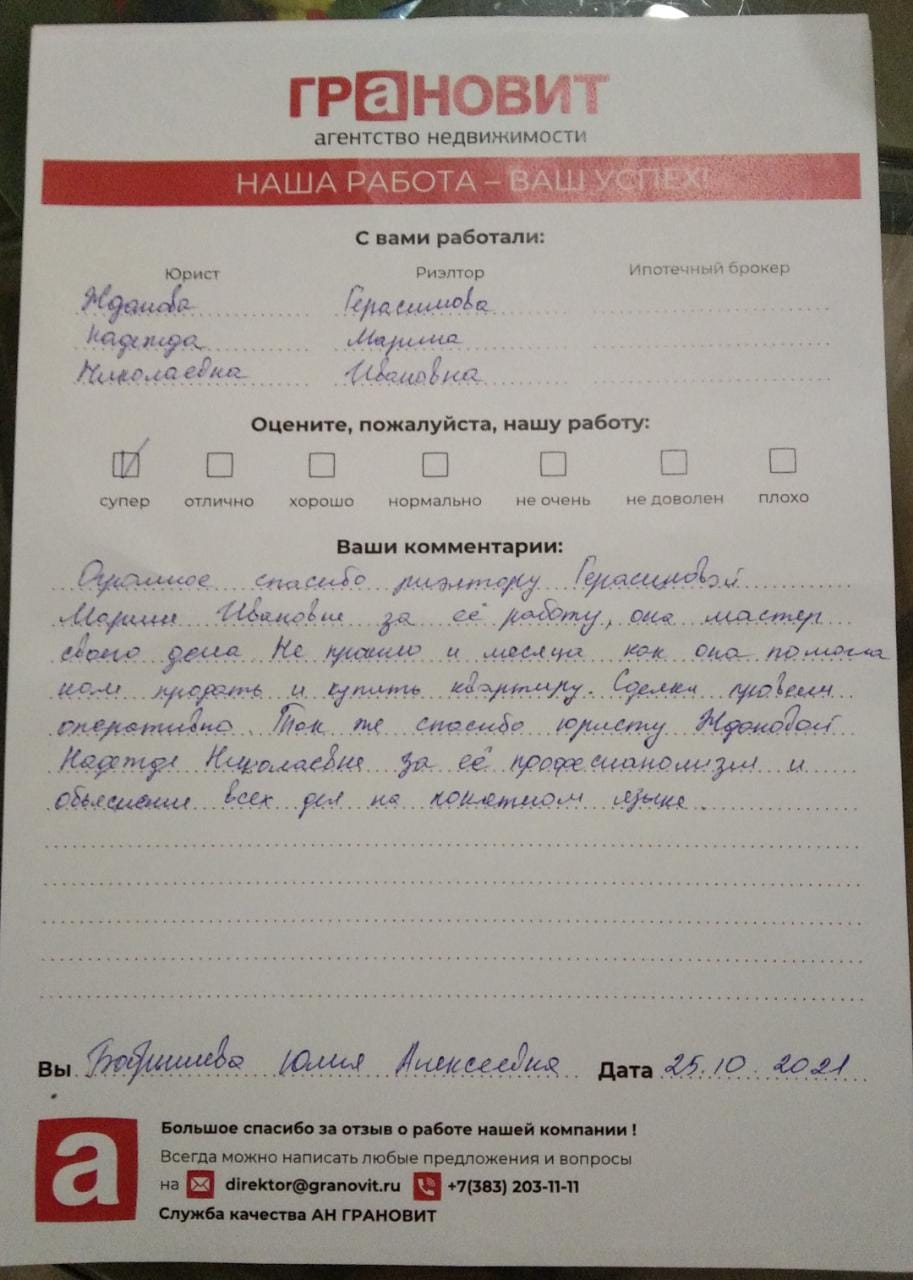 ГРаНОВИТ
агентство недвижимости
НАША РАБОТА – ВАШ УСПЕХ!
С вами работали:
Юрист Риэлтор Ипотечный брокер
Жданова Герасимова
Надежда Марина
Николаевна Ивановна
Оцените, пожалуйста, нашу работу:
супер отлично хорошо нормально не очень не доволен плохо
Ваши комментарии:
Огромное спасибо риэлтору Герасимовой
Марине Ивановне за её работу, она мастер
своего дела Не прошло и месяца как она помогла
нам продать и купить квартиру. Сделки провели
оперативно. Так же спасибо юристу Ждановой
Надежде Николаевне за её професианализм и
обьяснили всех дел на понятном языке.
Вы Юлия Алексеевна Дата 25.10.2021
а Большое спасибо за отзыв о работе нашей компании !
Всегда можно написать любые предложения и вопросы
на direktor@granovit.ru +7(383) 203-11-11
Служба качества АН ГРАНОВИТ